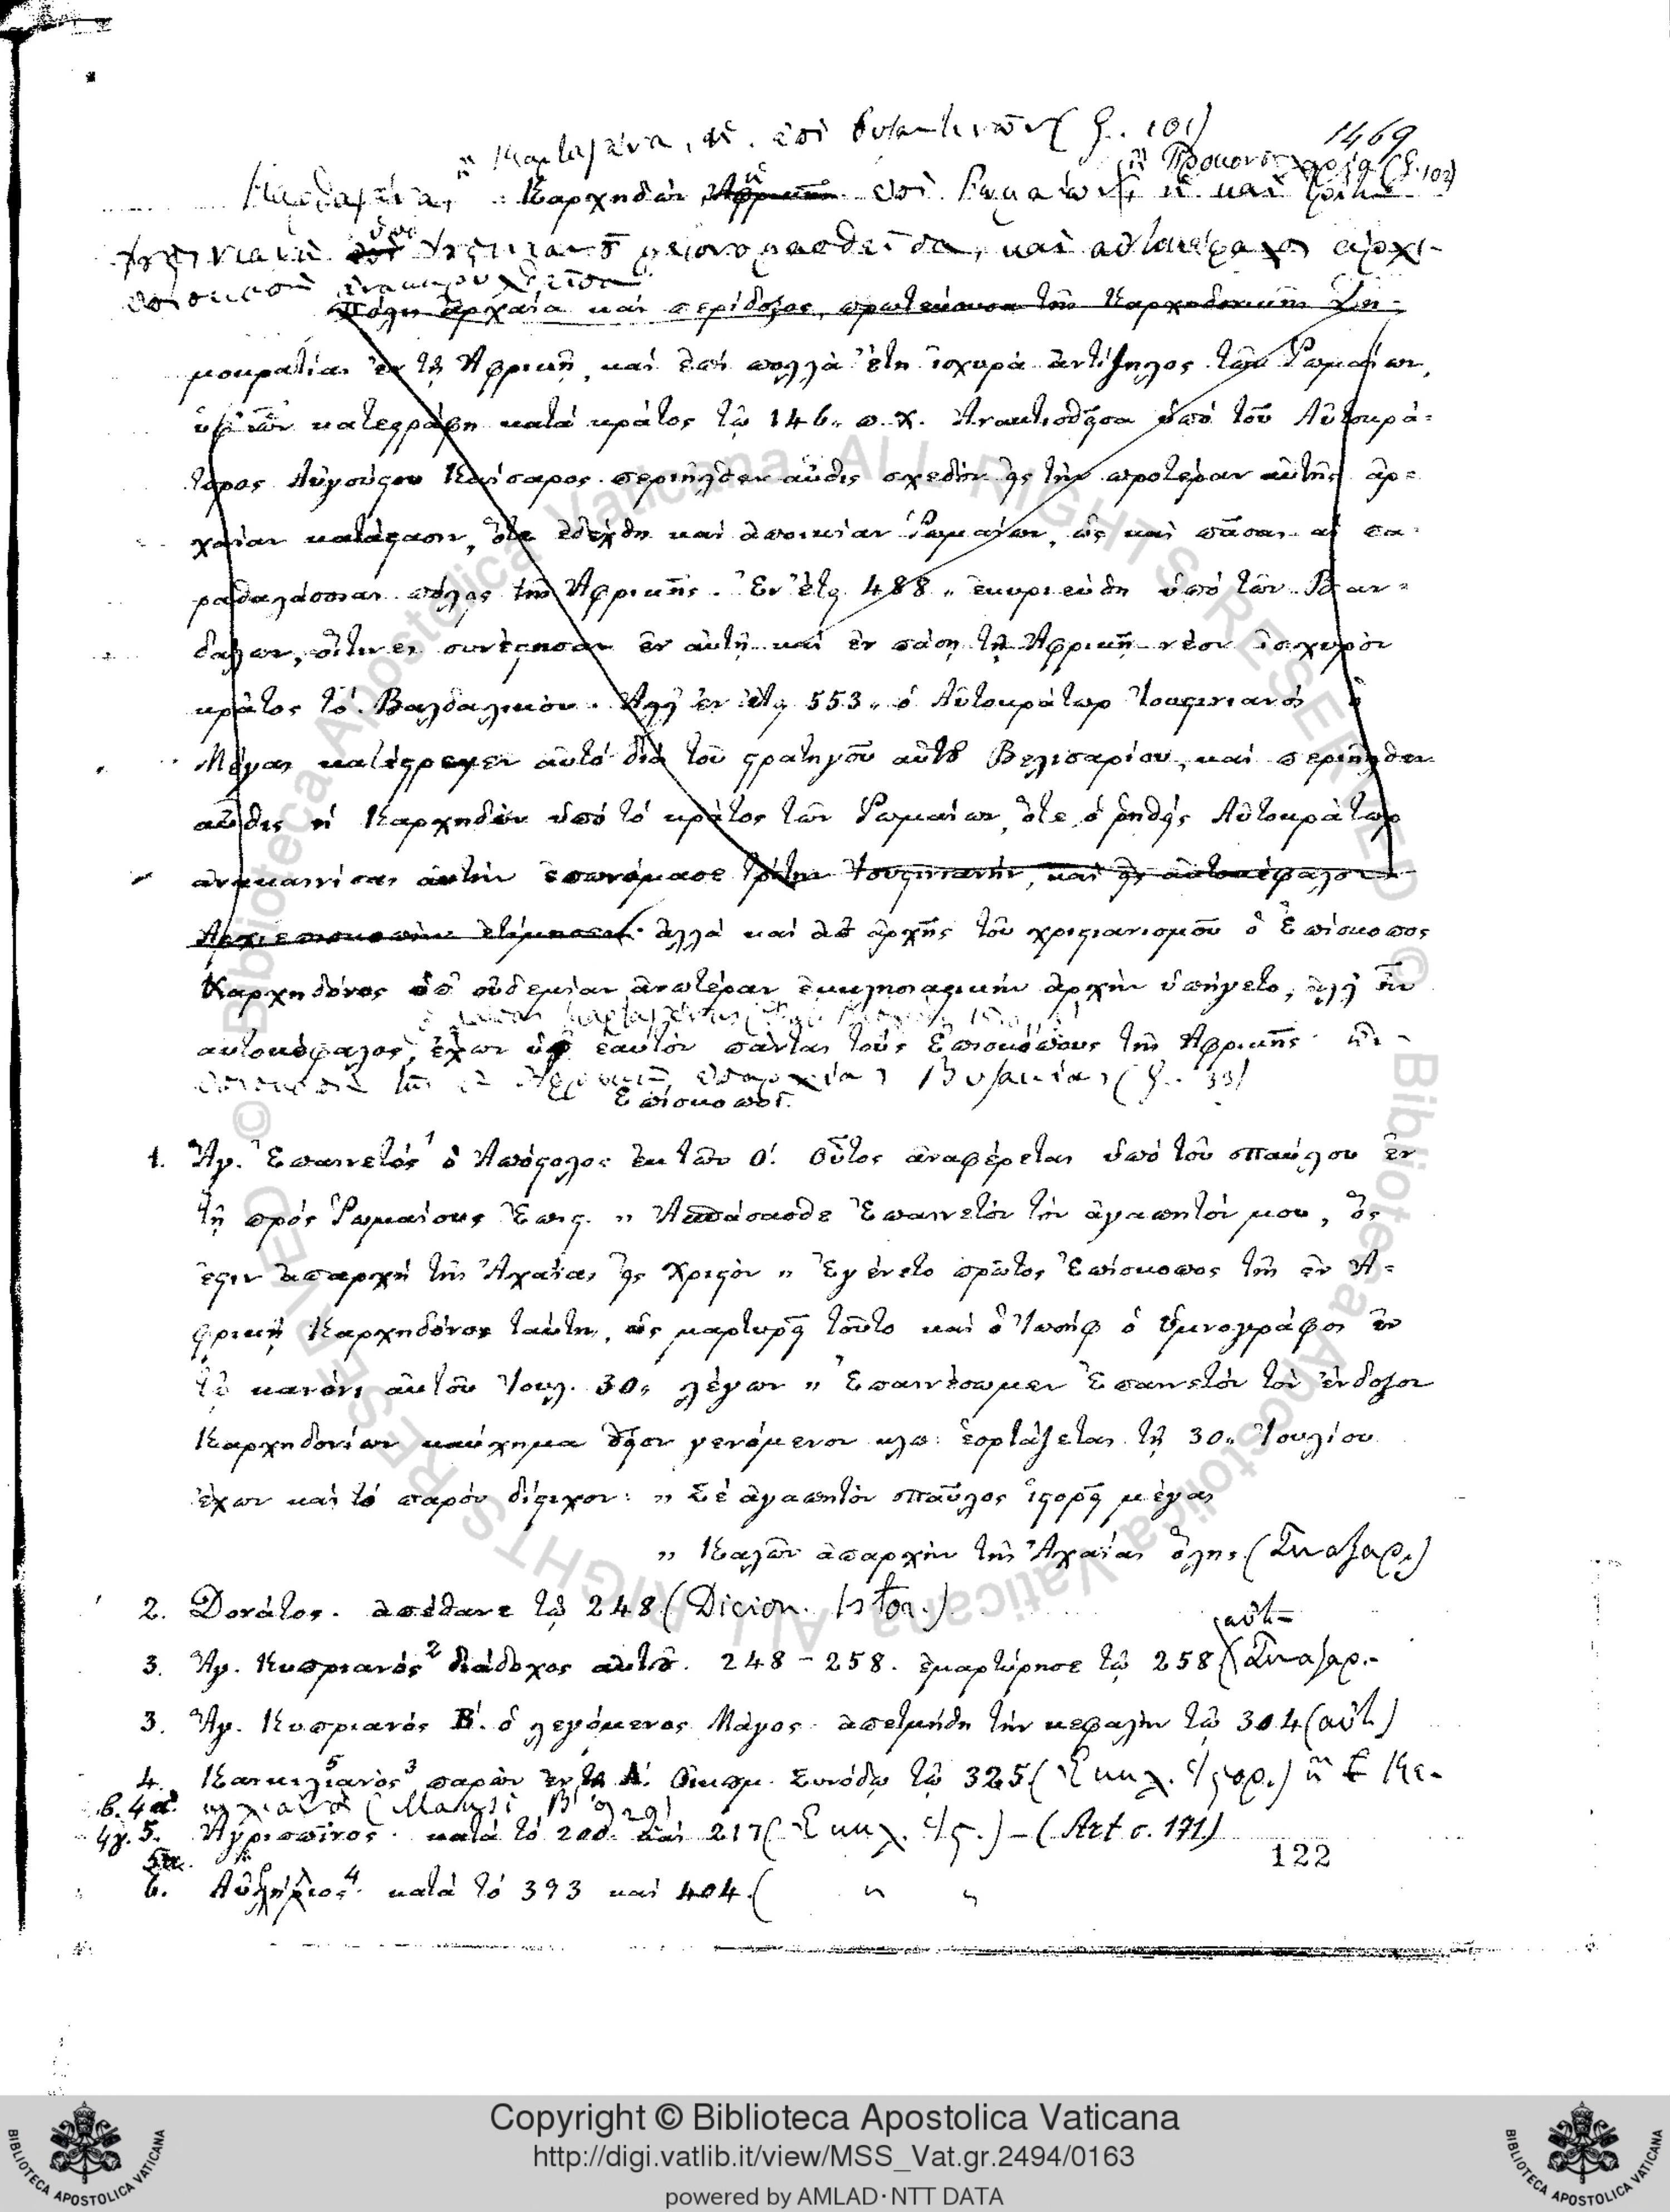 1469
Καρχηδών
πόλις ἀρχαία καὶ περίδοξος, πρωτεύουσα τῆς Καρχηδονικῆς Δη-
μοκρατίας ἐν τῇ Ἀφρικῇ, καὶ ἐπὶ πολλὰ ἔτη ἰσχυρὰ ἀντίζηλος τῶν Ῥωμαίων,
ὑφ' ὧν κατεστράφη κατὰ κράτος τῷ 146. π. Χ. Ἀνακτισθεῖσα ὑπὸ τοῦ Αὐτοκρά-
τορος Αὐγούστου Καίσαρος περιῆλθεν αὖθις σχεδὸν εἰς τὴν προτέραν αὐτῆς ἀρ-
χαίαν κατάστασιν, ὅτε ἐδέχθη καὶ ἀποικίαν Ῥωμαίων, ὡς καὶ πᾶσαι αἱ πα-
ραθαλάσσιαι πόλεις τῆς Ἀφρικῆς. Ἐν ἔτει 488 ἐκυριεύθη ὑπὸ τῶν Βαν-
δάλων, οἵτινες συνέστησαν ἐν αὐτῇ καὶ ἐν πάσῃ τῇ Ἀφρικῇ νέον ἰσχυρὸν
κράτος τὸ Βαλδαλικόν. Ἀλλ' ἐν ἔτει 553 ὁ Αὐτοκράτωρ Ἰουστινιανὸς ὁ
Μέγας κατέστρεψεν αὐτὸ διὰ τοῦ στρατηγοῦ αὐτοῦ Βελισαρίου, καὶ περιῆλθεν
αὖθις ἡ Καρχηδὼν ὑπὸ τὸ κράτος τῶν Ῥωμαίων, ὅτε ὁ ῥηθεὶς Αὐτοκράτωρ
ἀνακαινίσας αὐτὴν ἐπωνόμασε τρίτην Ἰουστινιανήν, καὶ εἰς αὐτοκέφαλον
Ἀρχιεπισκοπὴν ἐτίμησεν· ἀλλὰ καὶ ἀπ' ἀρχῆς τοῦ χριστιανισμοῦ ὁ Ἐπίσκοπος
Καρχηδόνος ὑπ' οὐδεμίαν ἀνωτέραν ἐκκλησιαστικὴν ἀρχὴν ὑπήγετο, ἀλλ' ἦν
αὐτοκέφαλος, ἔχων ὑφ' ἑαυτὸν πάντας τοὺς Ἐπισκόπους τῆς Ἀφρικῆς
Ἐπίσκοποι.
1. Ἅγ. Ἐπαινετός¹ ὁ Ἀπόστολος ἐκ τῶν Ο'. οὗτος ἀναφέρεται ὑπὸ τοῦ Παύλου ἐν
τῇ πρὸς Ῥωμαίους Ἐπιστ. „ Ἀσπάσασθε Ἐπαινετὸν τὸν ἀγαπητόν μου, ὅς
ἐστιν ἀπαρχὴ τῆς Ἀχαΐας εἰς Χριστόν „ Ἐγένετο πρῶτος Ἐπίσκοπος τῆς ἐν Ἀ-
φρικῇ Καρχηδόνος ταύτης, ὡς μαρτυρεῖ τοῦτο καὶ ὁ Ἰωσὴφ ὁ ὑμνογράφος ἐν
τῷ κανόνι αὐτοῦ Ἰουλ. 30 λέγων „ Ἐπαινέσωμεν Ἐπαινετὸν τὸν ἔνδοξον
Καρχηδονίων καύχημα θεῖον γενόμενον κλπ: ἑορτάζεται τῇ 30 Ἰουλίου
ἔχων καὶ τὸ παρὸν δίστιχον: „ Σὲ ἀγαπητὸν Παῦλος ἱστορεῖ μέγας
„ Καλῶν ἀπαρχὴν τῆς Ἀχαΐας ὅλης (Συναξαρ.)
2. Δονάτος. ἀπέθανε τῷ 248 (Dicion. Istor.)
3. Ἅγ. Κυπριανός² διάδοχος αὐτοῦ. 248 - 258. ἐμαρτύρησε τῷ 258 (Συναξαρ.
3. Ἅγ. Κυπριανὸς Β'. ὁ λεγόμενος Μάγος ἀπετμήθη τὴν κεφαλὴν τῷ 304 (αὐτ.)
4. Καικιλιανός³ παρὼν ἐν τῇ Α'. Οἰκουμ. Συνόδῳ τῷ 325 (Ἐκκλ. Ἱστορ.)
5. Ἀγριππῖνος. κατὰ τὸ 200. καὶ 217 (Ἐκκλ. Ἱστ.) - (Art σ. 171)
6. Αὐρήλιος⁴ κατὰ τὸ 393 καὶ 404 ( „ „
122
© Biblioteca Apostolica Vaticana ALL RIGHTS RESERVED
Copyright © Biblioteca Apostolica Vaticana
http://digi.vatlib.it/view/MSS_Vat.gr.2494/0163
powered by AMLAD·NTT DATA
BIBLIOTECA APOSTOLICA VATICANA
BIBLIOTECA APOSTOLICA VATICANA